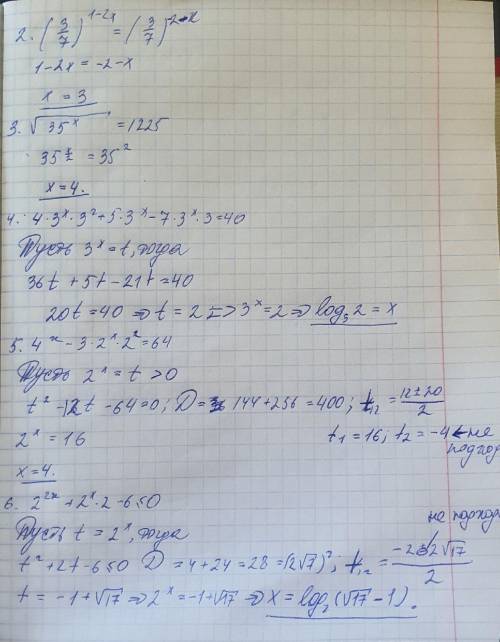 2. (3/7)^(1-2x) = (3/7)^(-2-x)
1-2x = -2-x
x = 3
3. √(35^x) = 1225
35^(x/2) = 35^2
x=4.
4. 4·3^x·3^2+5·3^x-7·3^x·3=40
Пусть 3^x = t, тогда
36t + 5t - 21t = 40
20t = 40 ⇒ t = 2 => 3^x = 2 ⇒ log_3 2 = x
5. 4^x - 3·2^x·2^2 = 64
Пусть 2^x = t > 0
t^2 - 12t - 64 = 0; D = 144 + 256 = 400; t_12 = (12 ± 20)/2
2^x = 16 t_1 = 16; t_2 = -4 ← не
x=4. подход
6. 2^(2x) + 2^x·2 - 6 = 0
Пусть t = 2^x, тогда не подход
t^2 + 2t - 6 = 0 D = 4 + 24 = 28 = (2√7)^2; t_12 = (-2 ± 2√17)/2
t = -1 + √17 ⇒ 2^x = -1 + √17 ⇒ x = log_2 (√17 - 1).